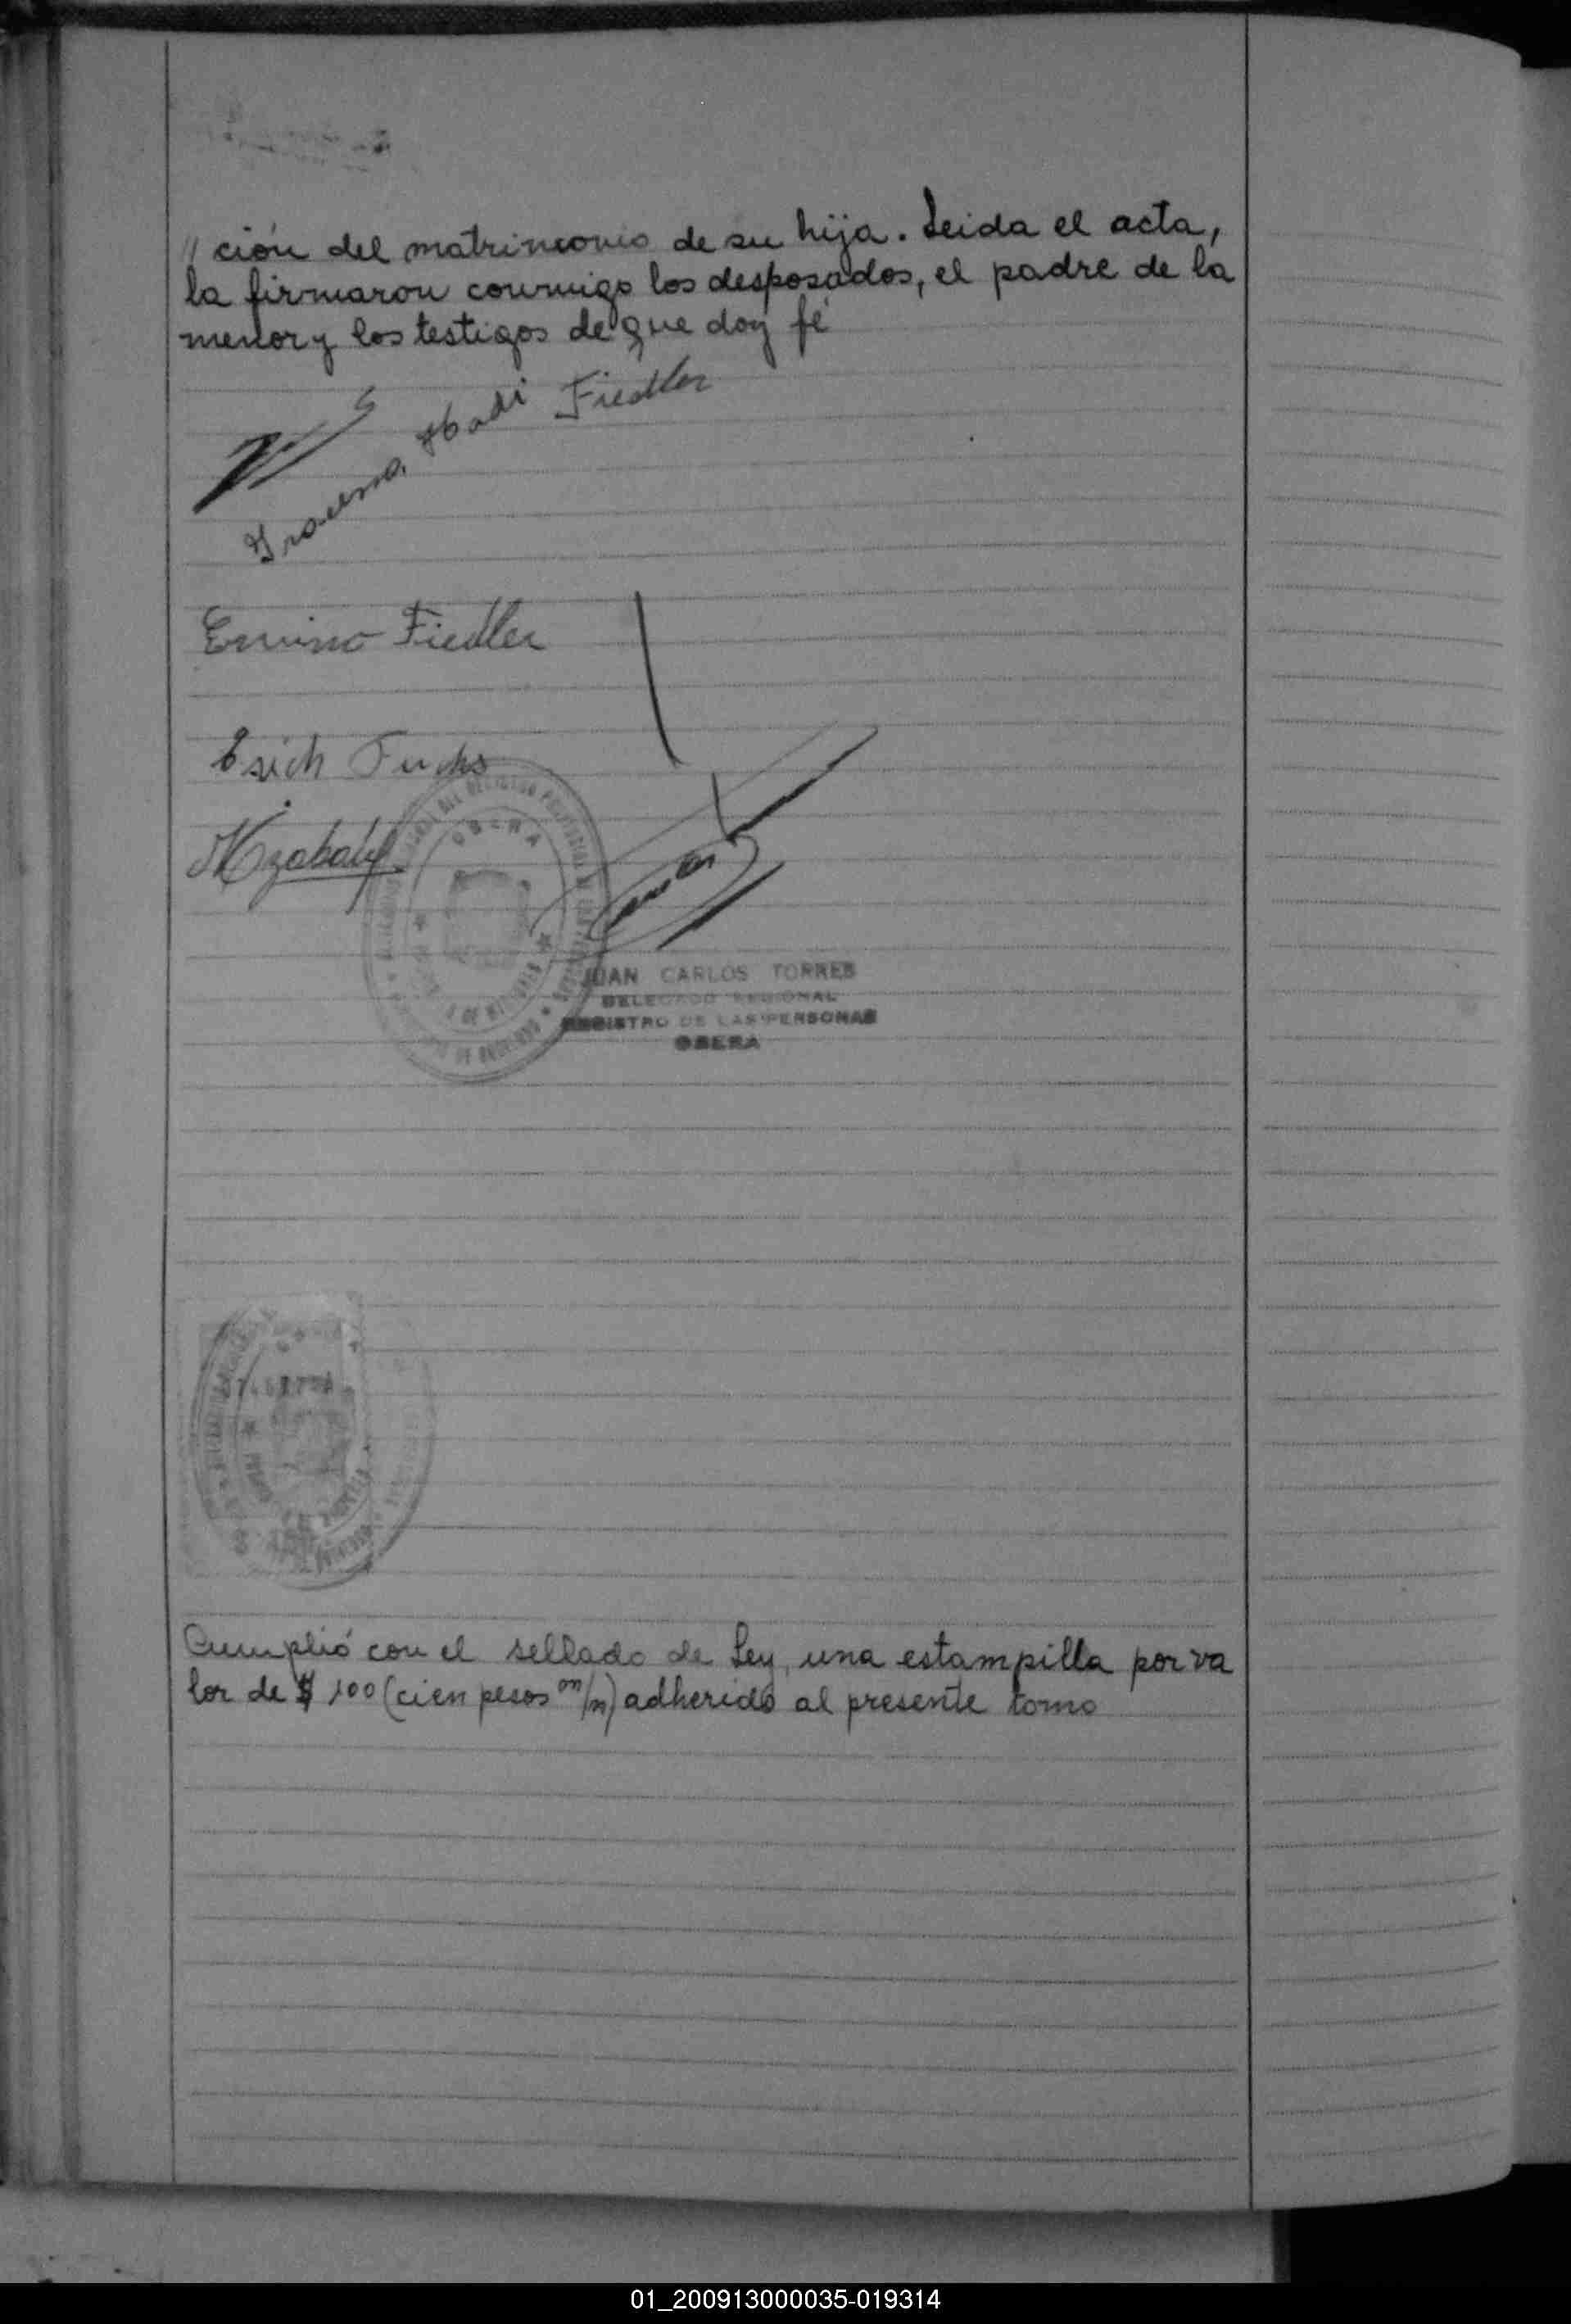 // ción del matrimonio de su hija. Leida el acta,
la firmaron conmigo los desposados, el padre de la
menor y los testigos de que doy fé
Fiedler
Ervino Fiedler
Erich Fuchs
OBERA
JUAN CARLOS TORRES
DELEGADO REGIONAL
REGISTRO DE LAS PERSONAS
OBERA
Cumplió con el sellado de Ley, una estampilla por va
lor de $ 100 (cien pesos m/n) adherido al presente tomo
01_200913000035-019314